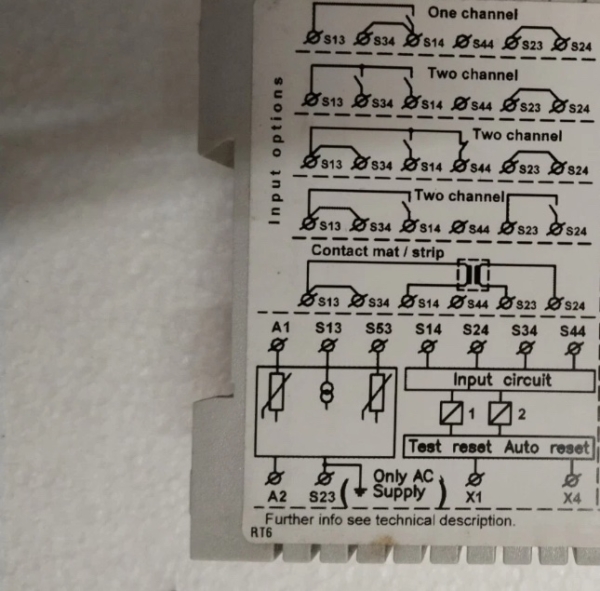 Input options
One channel
S13 S34 S14 S44 S23 S24
Two channel
S13 S34 S14 S44 S23 S24
Two channel
S13 S34 S14 S44 S23 S24
Two channel
S13 S34 S14 S44 S23 S24
Contact mat / strip
S13 S34 S14 S44 S23 S24
A1 S13 S53 S14 S24 S34 S44
Input circuit
1 2
Test reset Auto reset
A2 S23 (Only AC Supply) X1 X4
Further info see technical description.
RT6